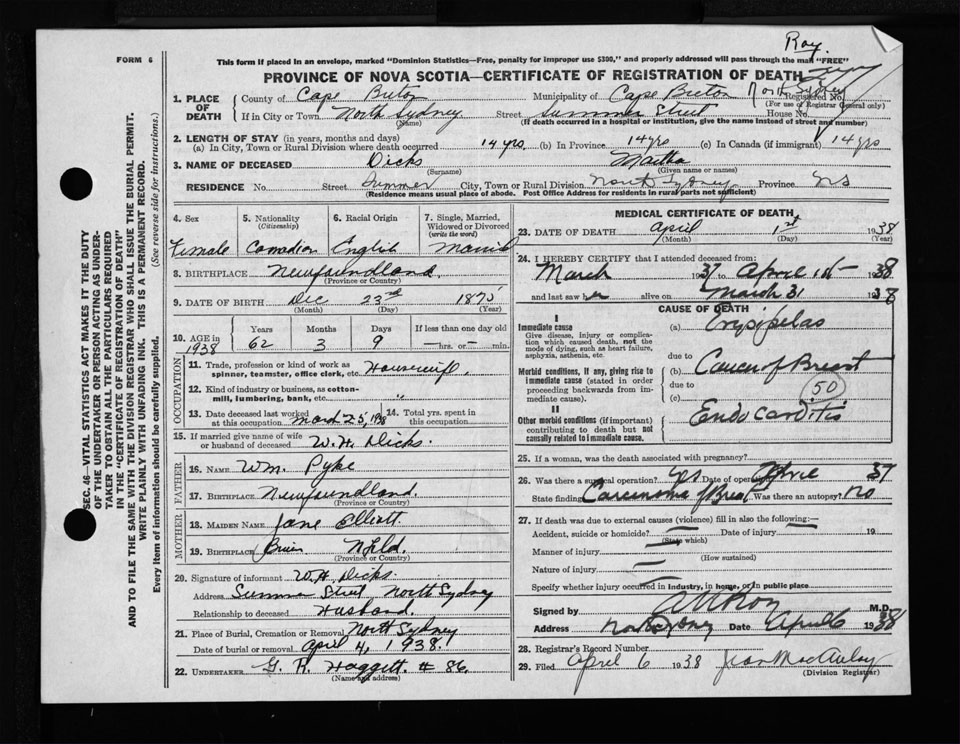 Roy.
FORM 6
This form if placed in an envelope, marked "Dominion Statistics—Free, penalty for improper use $300," and properly addressed will pass through the mail "FREE"
PROVINCE OF NOVA SCOTIA—CERTIFICATE OF REGISTRATION OF DEATH
1. PLACE OF DEATH
County of Cape Breton Municipality of Cape Breton North Sydney Registered No.
(For use of Registrar General only)
If in City or Town North Sydney Street Summer Street House No.
(Name) (If death occurred in a hospital or institution, give the name instead of street and number)
2. LENGTH OF STAY (in years, months and days)
(a) In City, Town or Rural Division where death occurred 14 yrs. (b) In Province 14 yrs (c) In Canada (if immigrant) 14 yrs
3. NAME OF DECEASED Dicks Martha
(Surname) (Given name or names)
RESIDENCE No. Street Summer City, Town or Rural Division North Sydney Province NS
(Residence means usual place of abode. Post Office Address for residents in rural parts not sufficient)
4. Sex
Female
5. Nationality
(Citizenship)
Canadian
6. Racial Origin
English
7. Single, Married, Widowed or Divorced
(write the word)
Married
8. BIRTHPLACE Newfoundland.
(Province or Country)
9. DATE OF BIRTH Dec 23rd 1875
(Month) (Day) (Year)
10. AGE in 1938
Years Months Days If less than one day old
62 3 9 —hrs. or— min.
OCCUPATION
11. Trade, profession or kind of work as spinner, teamster, office clerk, etc. Housewife.
12. Kind of industry or business, as cotton-mill, lumbering, bank, etc. "
13. Date deceased last worked at this occupation March 25, 1938
14. Total yrs. spent in this occupation
15. If married give name of wife or husband of deceased W. H. Dicks.
FATHER
16. NAME Wm. Pyke
17. BIRTHPLACE Newfoundland.
MOTHER
18. MAIDEN NAME Jane Elliott.
19. BIRTHPLACE Nfld.
(Province or Country)
20. Signature of informant W. H. Dicks.
Address Summer Street, North Sydney
Relationship to deceased Husband.
21. Place of Burial, Cremation or Removal North Sydney
Date of burial or removal April 4, 1938.
22. UNDERTAKER G. R. Haggett. # 86.
(Name and address)
MEDICAL CERTIFICATE OF DEATH
23. DATE OF DEATH April 1st 1938
(Month) (Day) (Year)
24. I HEREBY CERTIFY that I attended deceased from:
March 1937 to April 1st 1938
and last saw her alive on March 31 1938
CAUSE OF DEATH
I
Immediate cause
Give disease, injury or complication which caused death, not the mode of dying, such as heart failure, asphyxia, asthenia, etc.
(a) Erysipelas
due to
Morbid conditions, if any, giving rise to immediate cause (stated in order proceeding backwards from immediate cause).
(b) Cancer of Breast
due to
(c) (50)
II
Other morbid conditions (if important) contributing to death but not causally related to immediate cause.
Endocarditis
25. If a woman, was the death associated with pregnancy?
26. Was there a surgical operation? Yes Date of operation April 37
State findings Carcinoma of Breast Was there an autopsy? No
27. If death was due to external causes (violence) fill in also the following:—
Accident, suicide or homicide? Date of injury 19
(State which)
Manner of injury
(How sustained)
Nature of injury
Specify whether injury occurred in industry, in home, or in public place
Signed by M.D.
Address North Sydney Date April 6 1938
28. Registrar's Record Number
29. Filed April 6 1938 Jean MacAulay
(Division Registrar)
SEC. 46—VITAL STATISTICS ACT MAKES IT THE DUTY OF THE UNDERTAKER OR PERSON ACTING AS UNDERTAKER TO OBTAIN ALL THE PARTICULARS REQUIRED IN THE "CERTIFICATE OF REGISTRATION OF DEATH" AND TO FILE THE SAME WITH THE DIVISION REGISTRAR WHO SHALL ISSUE THE BURIAL PERMIT.
WRITE PLAINLY WITH UNFADING INK. THIS IS A PERMANENT RECORD.
Every item of information should be carefully supplied. (See reverse side for instructions.)